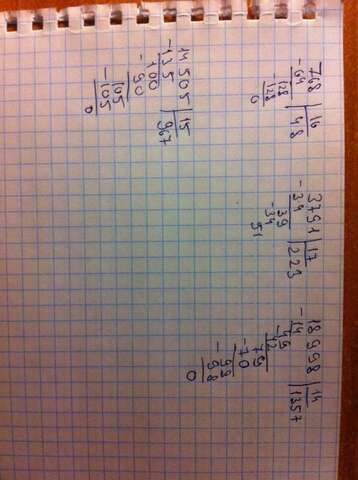 768 | 16
-64 | 48
128
-128
0
3791 | 17
-34 | 223
39
-34
51
18998 | 14
-14 | 1357
-49
79
-70
-98
0
14505 | 15
-135 | 967
100
-90
105
-105
0